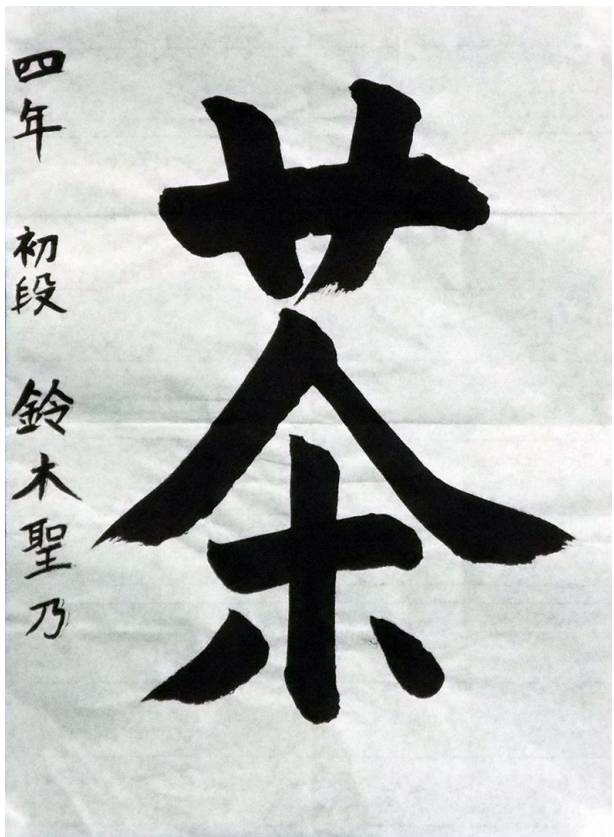 茶
四年 初段 鈴木聖乃